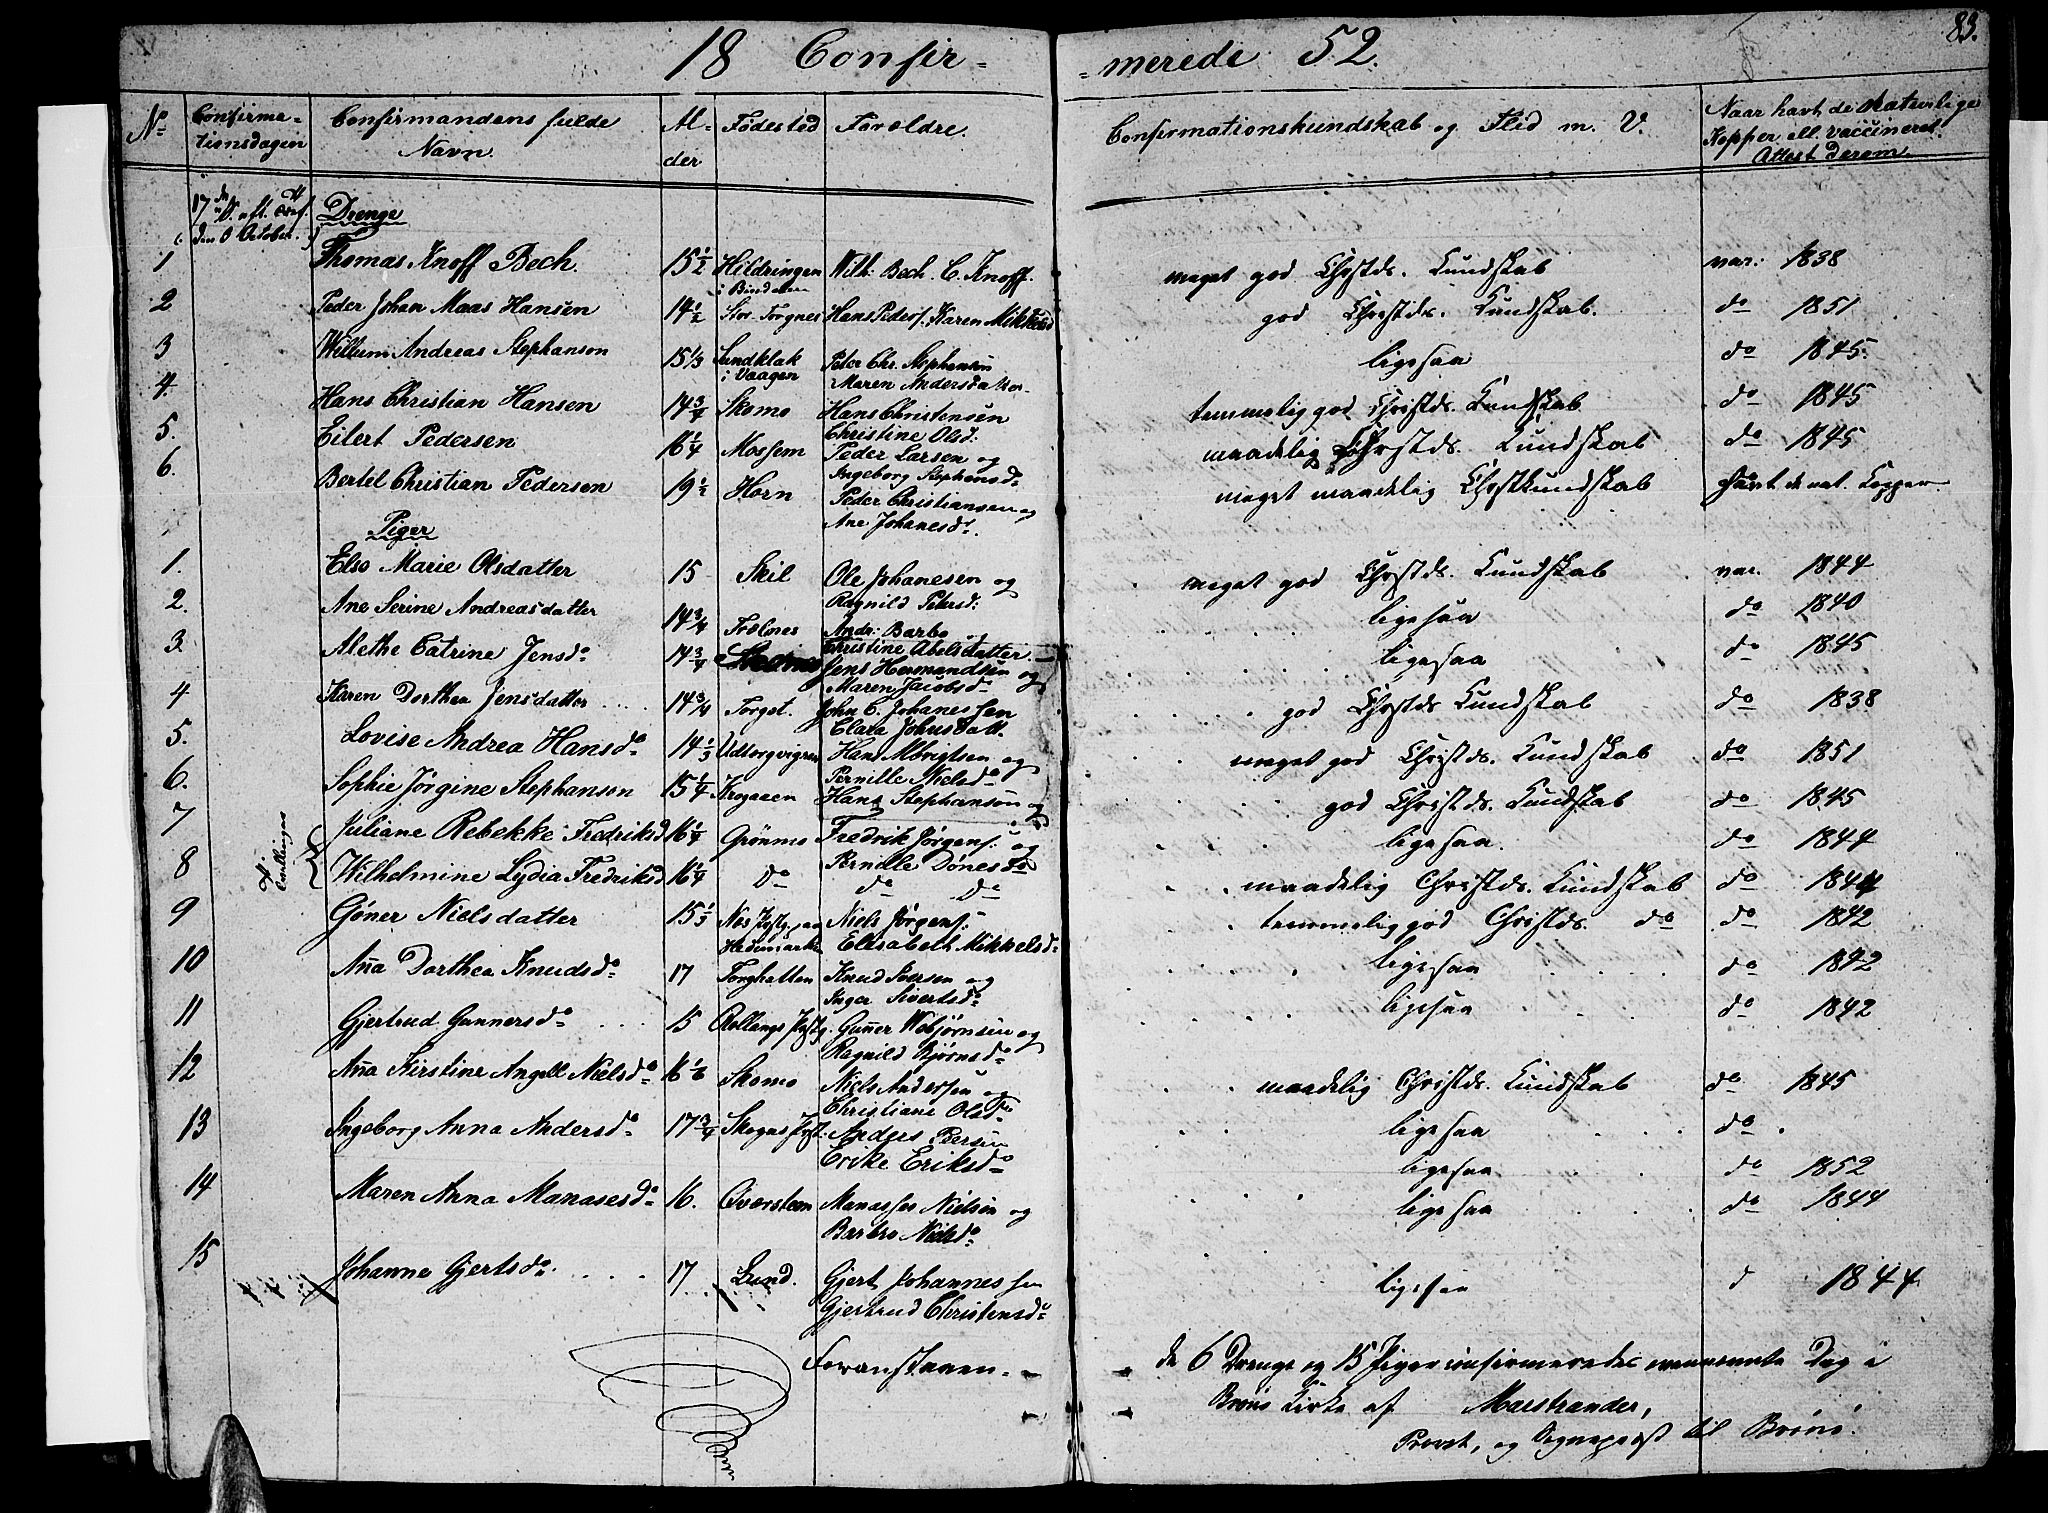 18 Confir-
-merede 52.
83.
No
Confirma-
tionsdagen
Confirmandens fulde
Navn.
Al-
der
Fødested
Forældre.
Confirmationskundskab og Flid m. V.
Naar havt de naturlige
Kopper ell. vaccineret.
Attest derom.
17de S. eft. Tref.
den October.
Drenge
1 Thomas Knoff Bech. 15 1/2 Hildringen i Bindalen Wilh: Bech. C. Knoff. meget god Chrstds. Kundskab vac: 1838
2 Peder Johan Maas Hansen 14 1/2 Stor Torgnes Hans Peders. Karen god Chrstds. Kundskab. do 1851
3 Willum Andreas Stephansen 15 1/3 Sundklak i Vaagen Peter Chr. Stephansen Maren Andersdatter ligesaa do 1845.
4. Hans Christian Hansen 14 3/4 Skomo Hans Christensen Christine Olsd: temmelig god Christds. Kundskab do 1845
5. Eilert Pedersen 16 1/4 Mossem Peder Larsen og Ingeborg Stephansd maadelig Chrstds. Kundskab do 1845
6. Bertel Christian Pedersen 19 1/2 Horn Peder Christiansen og Ane Johanesd. meget maadelig Chrstkundskab havt de nat. Kopper
Piger
1. Else Marie Olsdatter 15 Skil Ole Johanesen og Ragnild Petersd: meget god Chrstds. Kundskab vac. 1844
2. Ane Serine Andreasdatter 14 3/4 Trælnes Andr: Barbo Christine Abelsdatter. ligesaa do 1840
3. Alethe Catrine Jensd. 14 3/4 Jens Hermandsen og Maren Jacobsd ligesaa do 1845
4 Karen Dorthea Jensdatter 14 3/4 Torget. John C. Johanessen Clara Johnsdatt. god Chrstds Kundskab do 1838
5. Lovise Andrea Hansd. 14 1/3 Udtorgvigen Hans Albrigtsen og Pernille Nielsd meget god Chrstds. Kundskab do 1851
6. Sophie Jørgine Stephansen 15 1/4 Krogaaen Hans Stephansen og god Christds. Kundskab do 1845
Tvillinger
7 Juliane Rebekke Fredriksd 16 1/4 Grønmo Fredrik Jørgens: og Pernille Dønesd ligesaa. do 1844
8 Wilhelmine Lydia Fredriksd 16 1/4 Do do Do maadelig Christds. Kundskab do 1844
9 Gøner Nielsdatter 15 1/3 Nes Pstg. paa Hedemarken Niels Jørgens: Elisabeth Mikkelsd. temmelig god Christds. do do 1842
10 Aña Dorthea Knudsd. 17 Torghatten Knud Iversen og Inger Sivertsd. ligesaa do 1842
11 Gjertrud Gunnersd. 15 Rollangs Pstg. Guñer Webjørnsen og Ragnild Bjørnsd. ligesaa do 1842
12 Aña Kirstine Angell Nielsd. 16 1/6 Skomo Niels Andersen og Christiane Olsd. maadelig Christds. Kundskab do 1845
13 Ingeborg Anna Andersd. 17 3/4 Skogns Pst: Anders Persen Erike Eriksd. ligesaa do
ligesaa do 1852
14 Maren Anna Manasesd. 16. Qværsteen Manasses Nielsen og Barbro Nielsd. ligesaa do 1844
15 Johanne Gjertsd. 17 Lund. Gjert Johannessen Gjertrud Christensd. ligesaa d 1844
Foranstaaen-
de 6 Drenge og 15 Piger confirmeredes ovennævnte Dag i
Brønø Kirke af Maestrander,
Provst, og Sognepræst til Brønø.